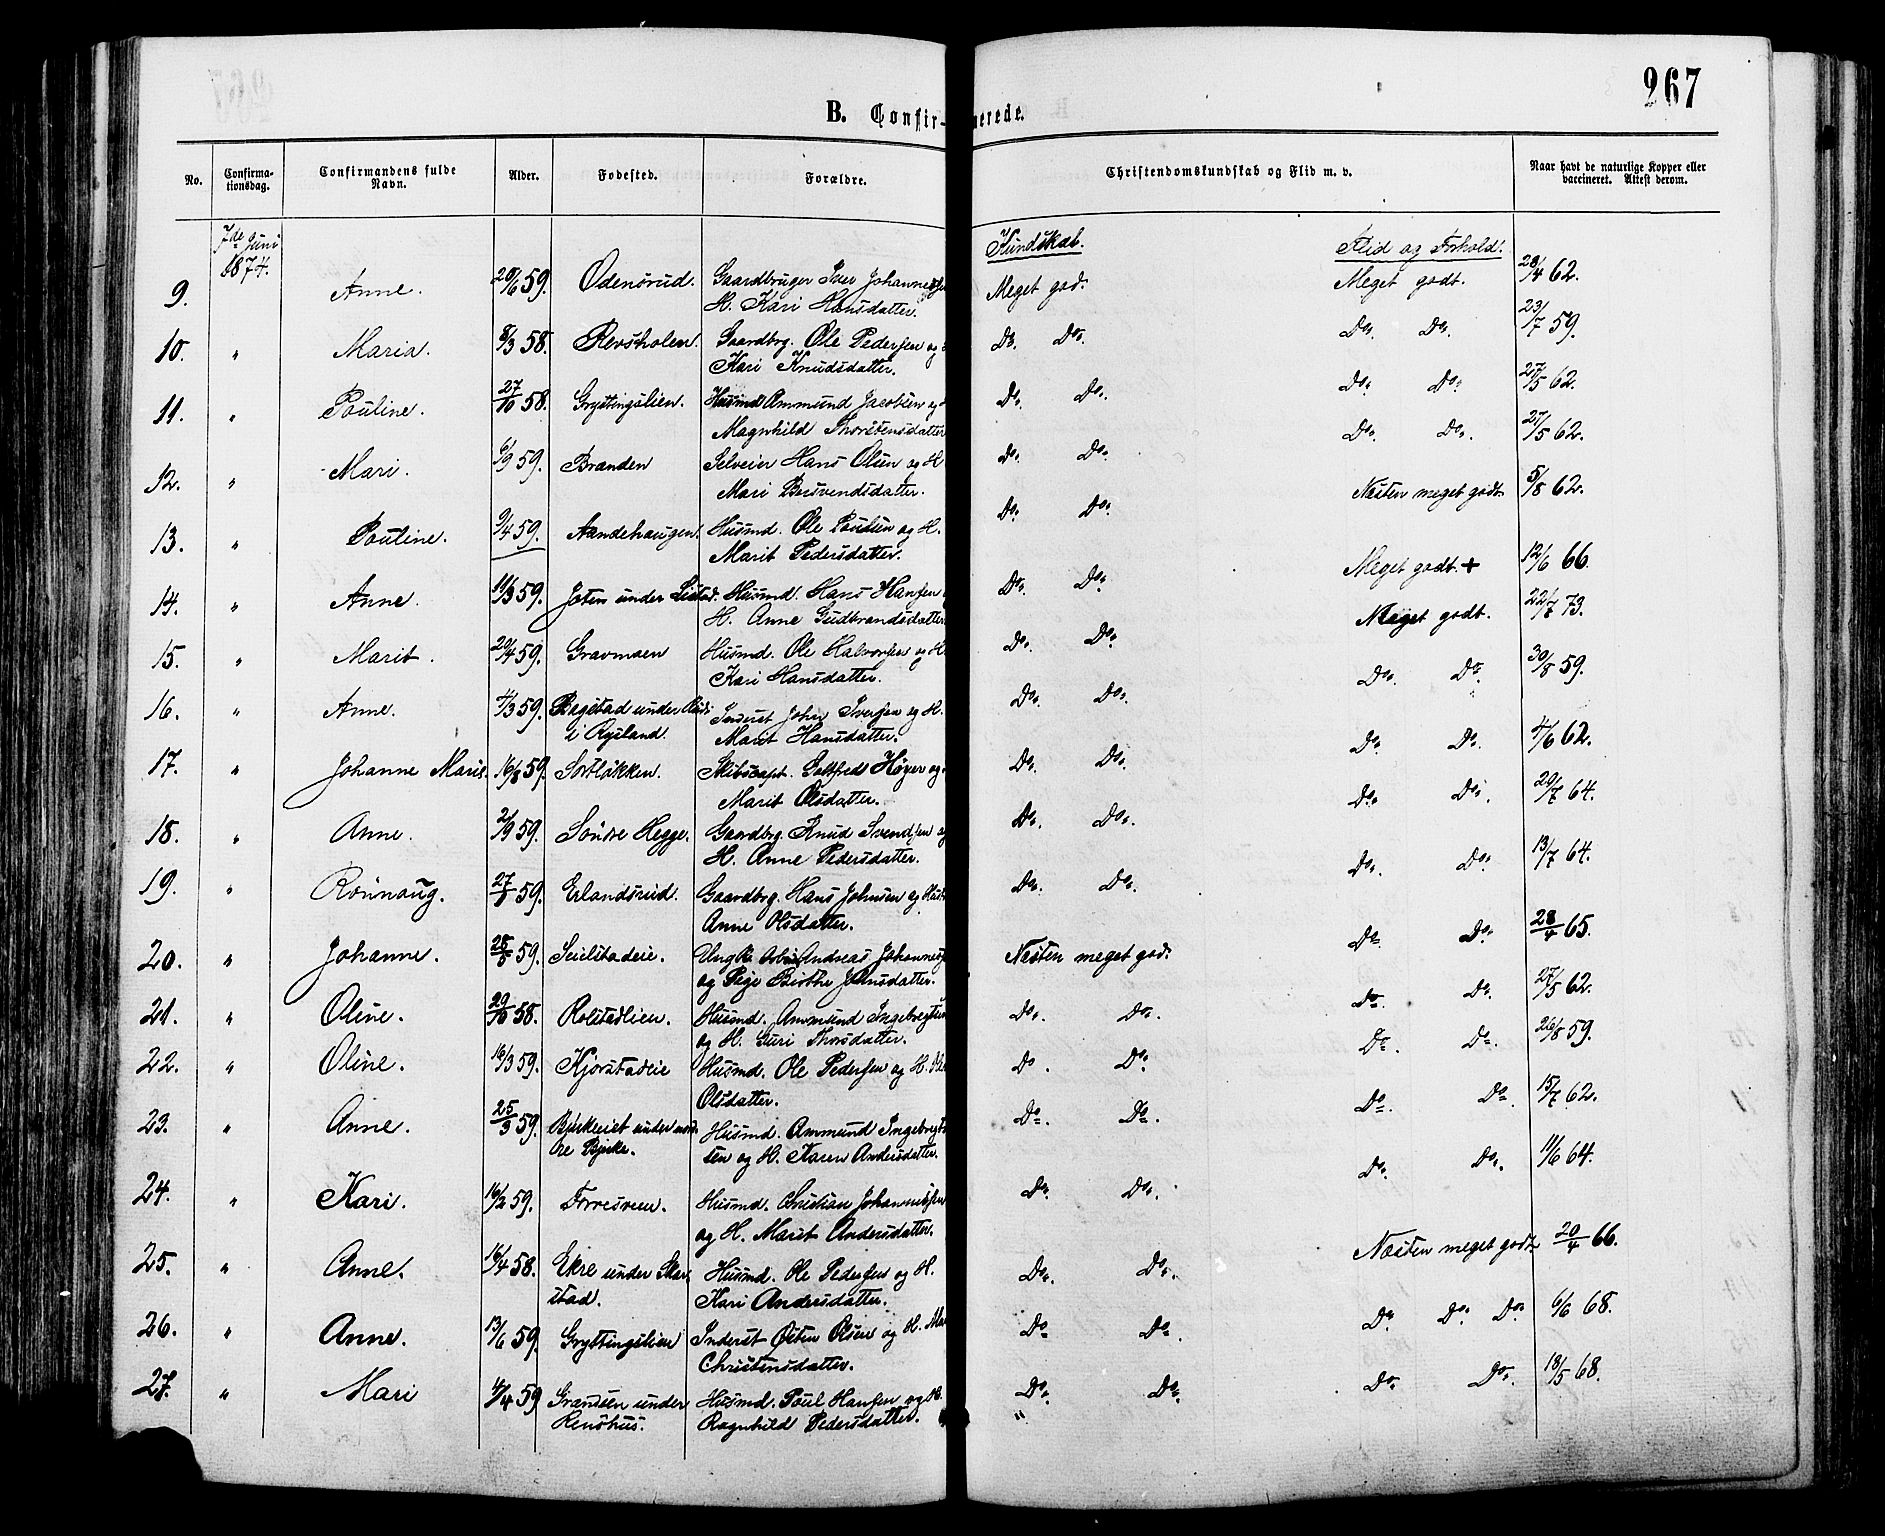 267
B. Confir-merede.
No. Confirma-tionsdag. Confirmandens fulde Navn. Alder. Fodested. Forældre. Christendomskundskab og Flid m. v. Naar havt de naturlige Kopper eller vaccineret. Attest derom.
7de Juni 1874. Kundskab. Flid og Forhold.
9. Anne. 20/6 59. Odensrud. Gaardbruger Iver Johannesen Meget god. Meget godt. 28/4 62.
H. Kari Hansdatter.
10. " Maria. 8/3 58. Revsholen. Gaardbrg. Ole Pedersen og Do. Do. Do. Do. 23/7 59.
Kari Knudsdatter.
11. " Pauline. 27/10 58. Gryttingslien. Husmd Ammund Jacobsen og Do. Do. Do. Do. 27/5 62.
Magnhild Thorstensdatter
12. " Mari. 6/9 59. Branden Selveier Hans Olsen og H. Do. Do. Do. Do. 27/5 62.
Mari Bersvendsdatter.
13. " Pauline. 9/4 59. Aandehaugen. Husmd. Ole Paulsen og H. Do. Do. Næsten meget godt 5/8 62.
Marit Pedersdatter.
14. " Anne. 11/3 59. Joten under Listad. Husmd. Hans Hansen Do. Do. Meget godt. + 12/6 66.
H. Anne Gudbrandsdatter
15. " Marit. 20/4 59. Gravmoen Husmd. Ole Halvorsen og H. Do. Do. Meget godt. 22/7 73.
Kari Hansdatter.
16. " Anne. 4/3 59. Bagstad under Do. Do. Do. Do. 30/8 59.
Inderst John Iversen og H.
i Rysland. Marit Hansdatter.
17. " Johanne Marie. 16/8 59. Sortløkken. Skibscapt. Gotfred Høyer og Do. Do. Do. Do. 4/6 62.
Marit Olsdatter.
18. " Anne. 2/9 59. Søndre Hegge. Gaardbrg. Knud Svendsen og Do. Do. Do. Do. 20/7 64.
H. Anne Pedersdatter.
19. " Rønnaug. 59. Erlandsrud. Gaardbrg. Hans Johnsen og Do. Do. Do. Do. 13/7 64.
Anne Olsdatter.
20. " Johanne. 59. Seilstadeie. Andreas Johannes Næsten meget god. Do. Do. 28/4 65.
og Pige Birthe Johnsdatter.
21. " Oline. 29/10 58. Rolstadlien. Husmd. Ammund Ingebregtsen Do. Do. Do. Do. 27/5 62.
og H. Guri Thorsdatter.
22. " Oline. 16/3 59. Kjorstadeie Husmd. Ole Pedersen og H. Do. Do. Do. Do. 26/8 59.
Olsdatter.
23. " Anne. 25/3 59. Bjerkeeiet under nor- Husmd. Ammund Ingebregt Do. Do. Do. Do. 15/7 62.
dre Bjerke. sen og H. Karen Andersdatter.
24. " Kari. 16/2 59. Forresveen. Husmd. Christian Johannessen Do. Do. Do. Do. 11/6 64.
og H. Marit Andersdatter.
25. " Anne. 16/4 58. Ekre under Skar Husmd. Ole Pedersen og H. Do. Do. Næsten meget godt 20/4 66.
stad. Kari Andersdatter.
26. " Anne. 13/6 59. Gryttingslien Inderst Østen Olsen og H. Do. Do. Do. Do. Do. 6/6 68.
Christensdatter.
27. " Mari 4/4 59 Grandsen under Husmd. Poul Hansen og H. Do. Do. Do. Do. 18/5 68.
Ragnhild Pedersdatter. "